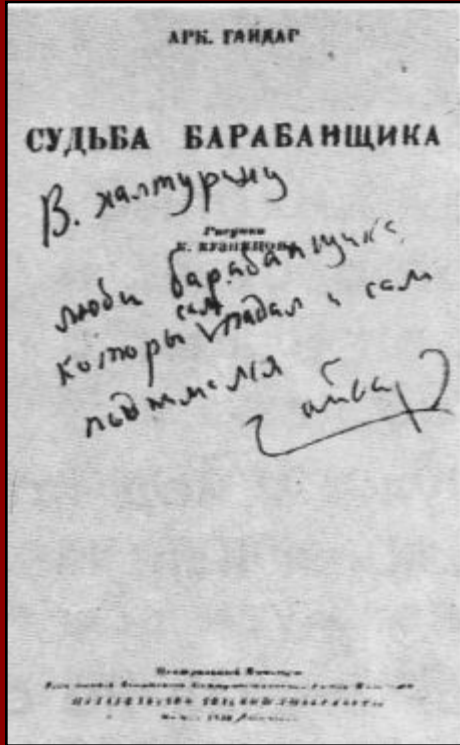 АРК. ГАЙДАР
СУДЬБА БАРАБАНЩИКА
В. халтурину
Рисунки
К. КУЗНЕЦОВА
люби барабанщика
сам
которы падал и сам
поднимался
Гайдар
Центральный Комитет